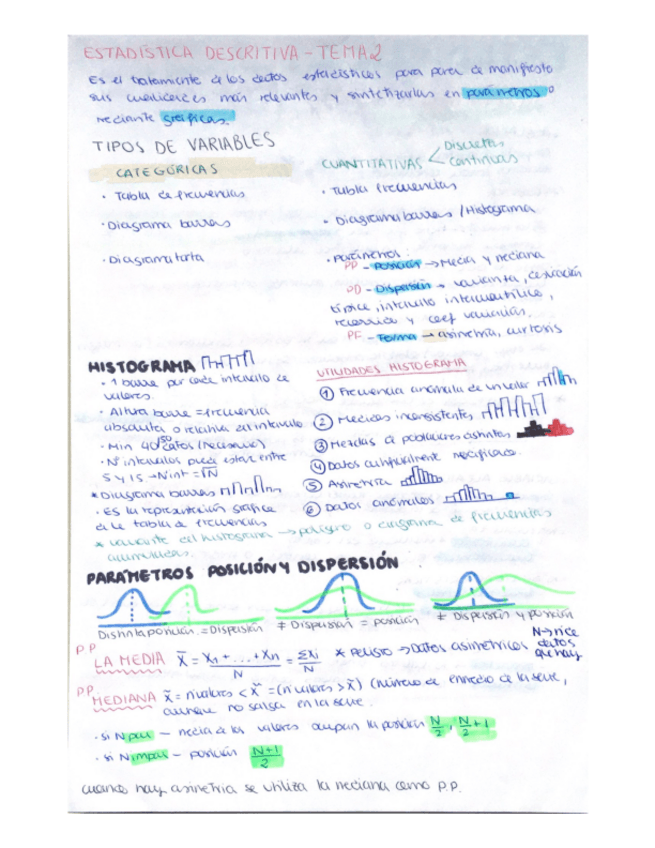 ESTADÍSTICA DESCRIPTIVA - TEMA 2
Es el tratamiento de los datos estadísticos para poner de manifiesto
sus más relevantes y sintetizarlas en parámetros o
mediante gráficas.
TIPOS DE VARIABLES
CATEGÓRICAS
· Tabla de frecuencias
· Diagrama barras
· Diagrama tarta
CUANTITATIVAS < Discretas
continuas
· Tabla frecuencias
· Diagrama barras / Histograma
· parámetros:
PP - Posición → Media y mediana
PD - Dispersión → varianza, desviación
típica, intervalo intercuartílico,
recorrido y coef variación.
PF - Forma → asimetría, curtosis
HISTOGRAMA
· 1 barra por cada intervalo de
valores.
· Altura barra = frecuencia
absoluta o relativa del intervalo
· Min 40/50 datos (necesario)
· Nº intervalos puede estar entre
5 y 15 → Nint = √N
* Diagrama barras
· Es la representación gráfica
de la tabla de frecuencias
* variante del histograma → polígono o diagrama de frecuencias
acumuladas.
UTILIDADES HISTOGRAMA
① Frecuencia anómala de un valor
② Medidas inconsistentes
③ Mezclas de poblaciones distintas
④ Datos artificialmente modificados.
⑤ Asimetría
⑥ Datos anómalos
PARÁMETROS POSICIÓN Y DISPERSIÓN
Distinta posición = Dispersión
≠ Dispersión = posición
≠ Dispersión y posición
PP
LA MEDIA x̄ = x₁ + ... + xₙ / N = Σxi / N * PELIGRO → Datos asimétricos
N → nº de datos que hay
PP
MEDIANA x̃ = nºvalores < x̃ = (nºvalores > x̃) (número de en medio de la serie,
aunque no salga en la serie.
· si N par - media de los valores ocupan la posición N/2, N/2 + 1
· si N impar - posición N+1/2
cuando hay asimetría se utiliza la mediana como P.P.